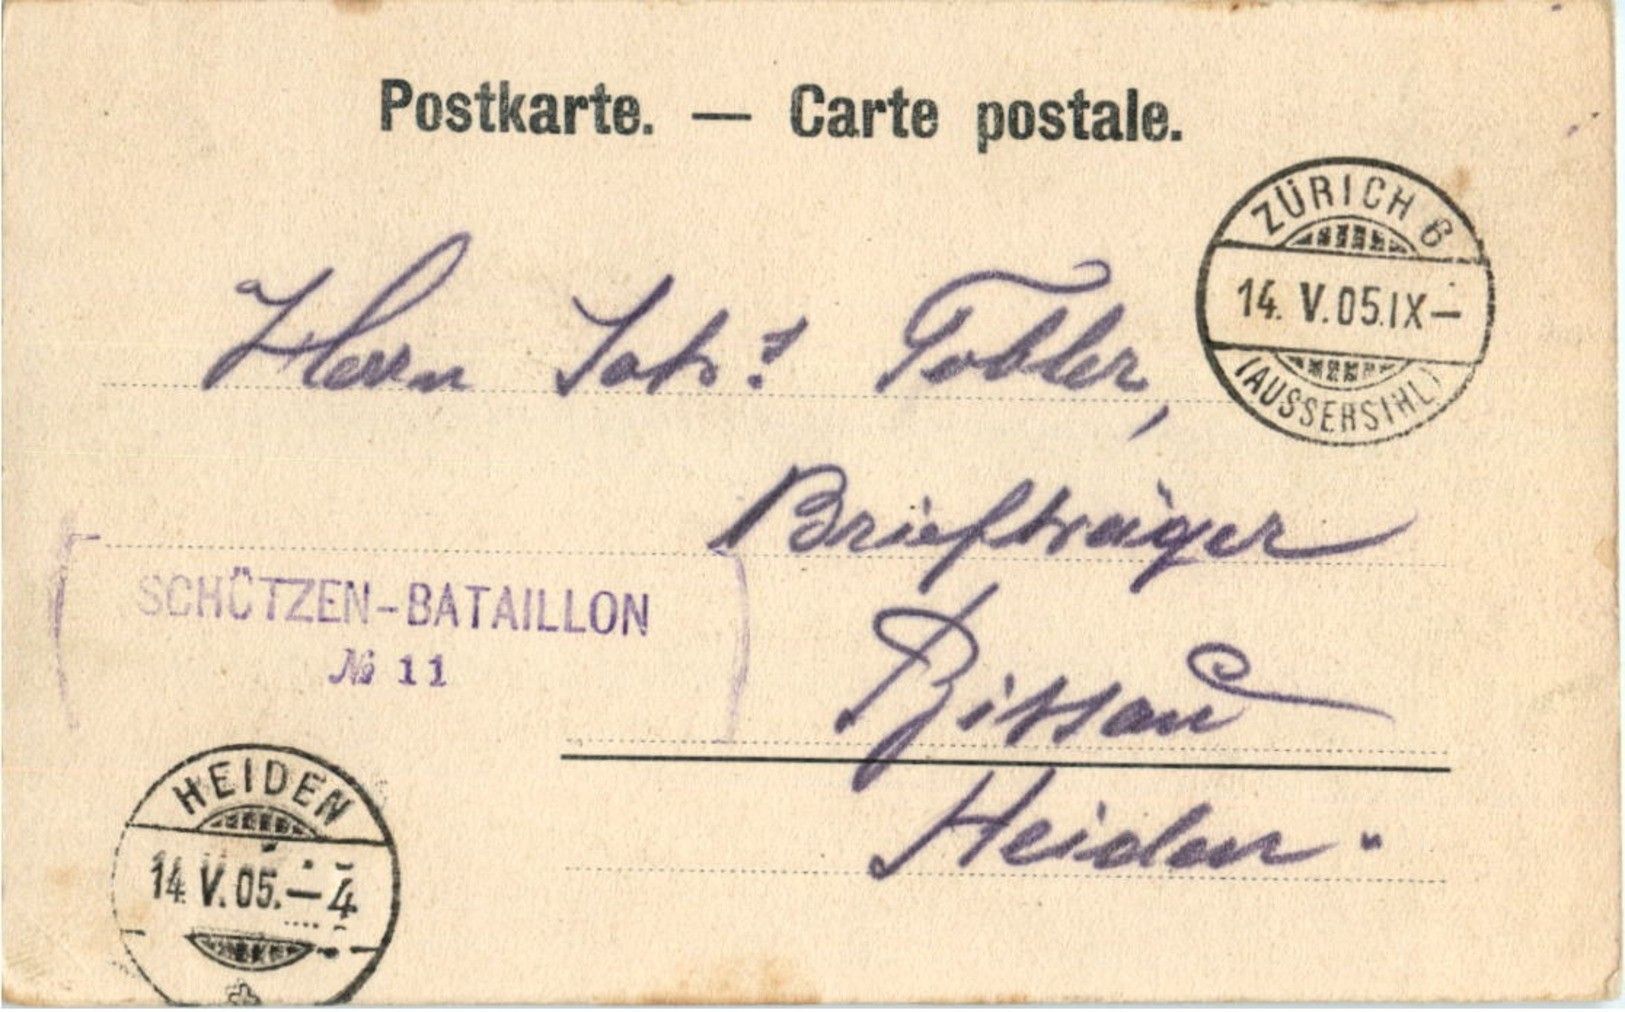 Postkarte. — Carte postale.
ZÜRICH 6
14. V. 05. IX —
(AUSSERSIHL)
Herrn Joh.s Tobler,
Briefträger
Bissau
Heiden.
SCHÜTZEN-BATAILLON
№ 11
HEIDEN
14. V. 05. — 4